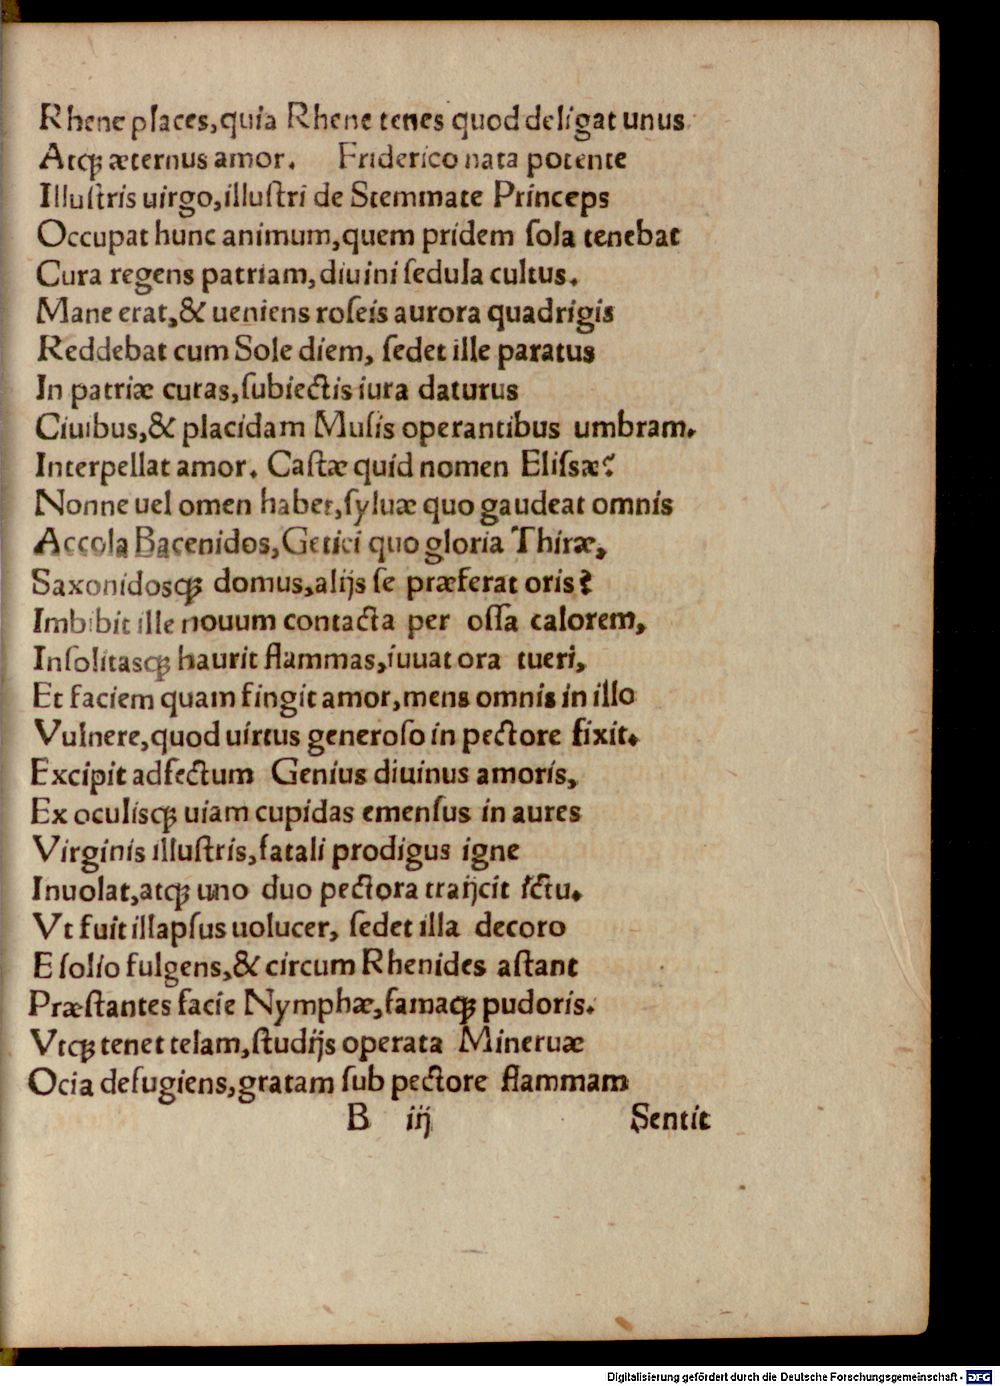 Rhene places,quia Rhene tenes quod deligat unus
Atqꝫ æternus amor. Friderico nata potente
Illuſtris uirgo,illuſtri de Stemmate Princeps
Occupat hunc animum,quem pridem ſola tenebat
Cura regens patriam,diuini ſedula cultus.
Mane erat,& ueniens roſeis aurora quadrigis
Reddebat cum Sole diem, ſedet ille paratus
In patriæ curas,ſubiectis iura daturus
Ciuibus,& placidam Muſis operantibus umbram.
Interpellat amor. Caſtæ quid nomen Eliſsæ?
Nonne uel omen habet,ſyluæ quo gaudeat omnis
Accola Bacenidos,Getici quo gloria Thiræ,
Saxonidosqꝫ domus,alijs ſe præferat oris?
Imbibit ille nouum contacta per oſſa calorem,
Inſolitasqꝫ haurit flammas,iuuat ora tueri,
Et faciem quam fingit amor,mens omnis in illo
Vulnere,quod uirtus generoſo in pectore fixit.
Excipit adfectum Genius diuinus amoris,
Ex oculisqꝫ uiam cupidas emenſus in aures
Virginis illuſtris,fatali prodigus igne
Inuolat,atqꝫ uno duo pectora traijcit ictu.
Vt fuit illapſus uolucer, ſedet illa decoro
E ſolio fulgens,& circum Rhenides aſtant
Præſtantes facie Nymphæ,famaqꝫ pudoris.
Vtqꝫ tenet telam,ſtudijs operata Mineruæ
Ocia defugiens,gratam ſub pectore flammam
B iij Sentit
Digitalisierung gefördert durch die Deutsche Forschungsgemeinschaft - DFG